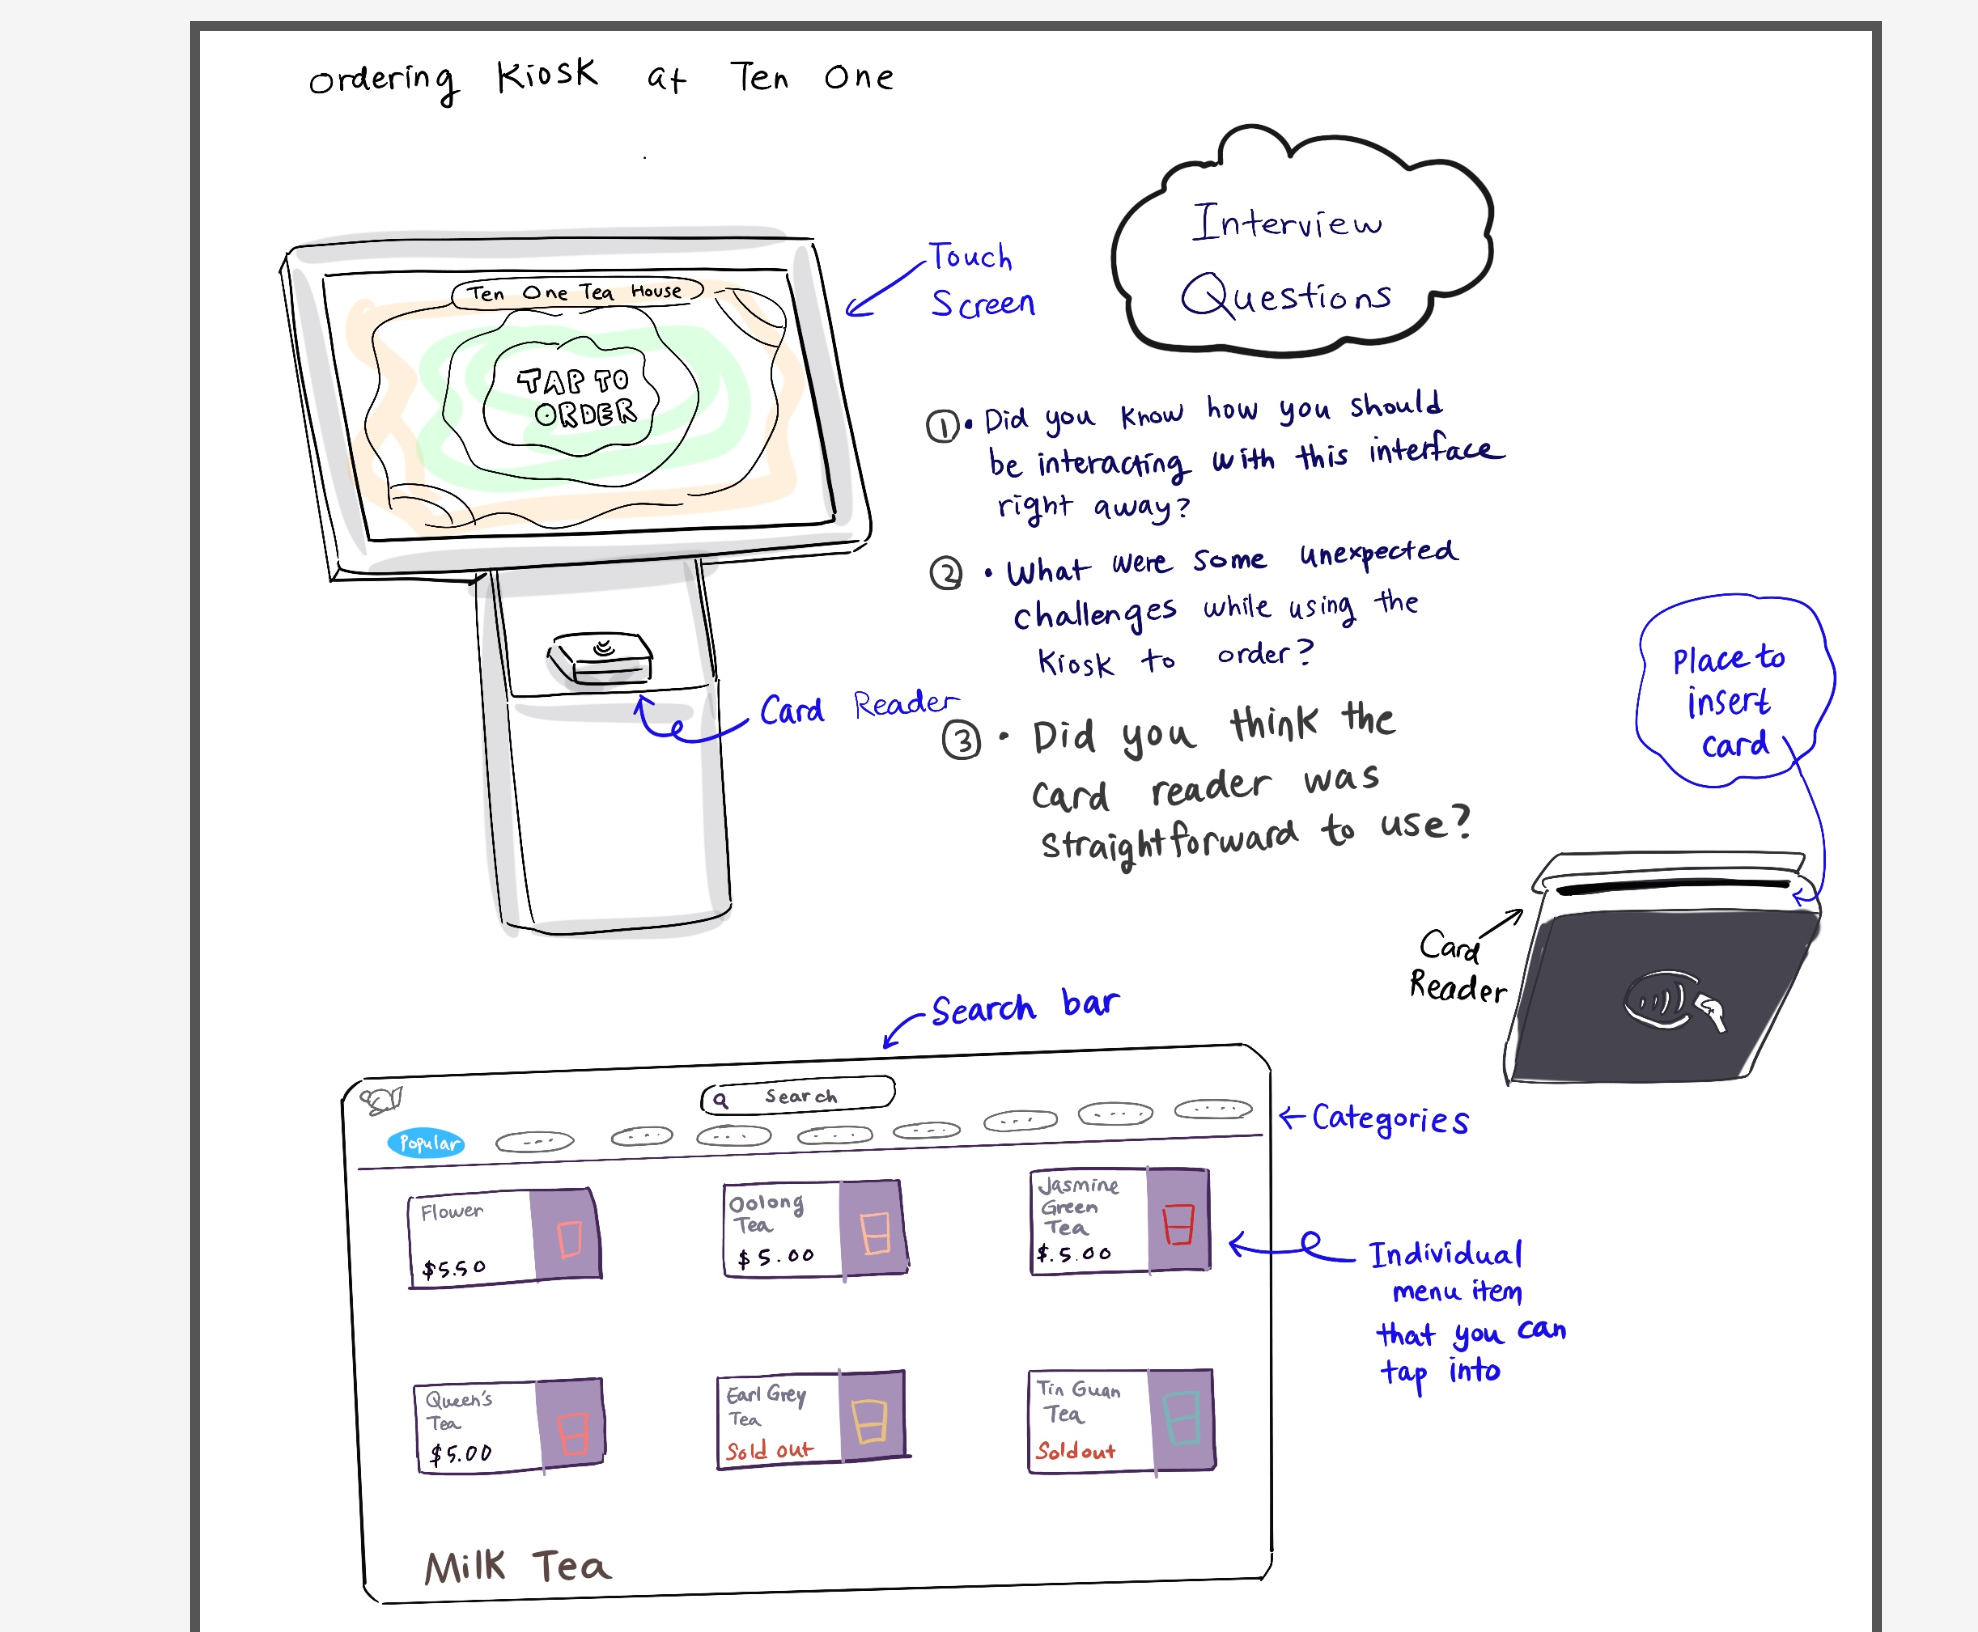 Ordering Kiosk at Ten One
Interview
Questions
Touch
Screen
Ten One Tea House
TAP TO
ORDER
Card Reader
① • Did you know how you should
be interacting with this interface
right away?
② • What were some unexpected
challenges while using the
Kiosk to order?
③ • Did you think the
card reader was
straightforward to use?
Place to
insert
card
Card
Reader
Search bar
Search
Popular
← Categories
Flower
$5.50
Oolong
Tea
$5.00
Jasmine
Green
Tea
$.5.00
Individual
menu item
that you can
tap into
Queen's
Tea
$5.00
Earl Grey
Tea
Sold out
Tin Guan
Tea
Sold out
Milk Tea